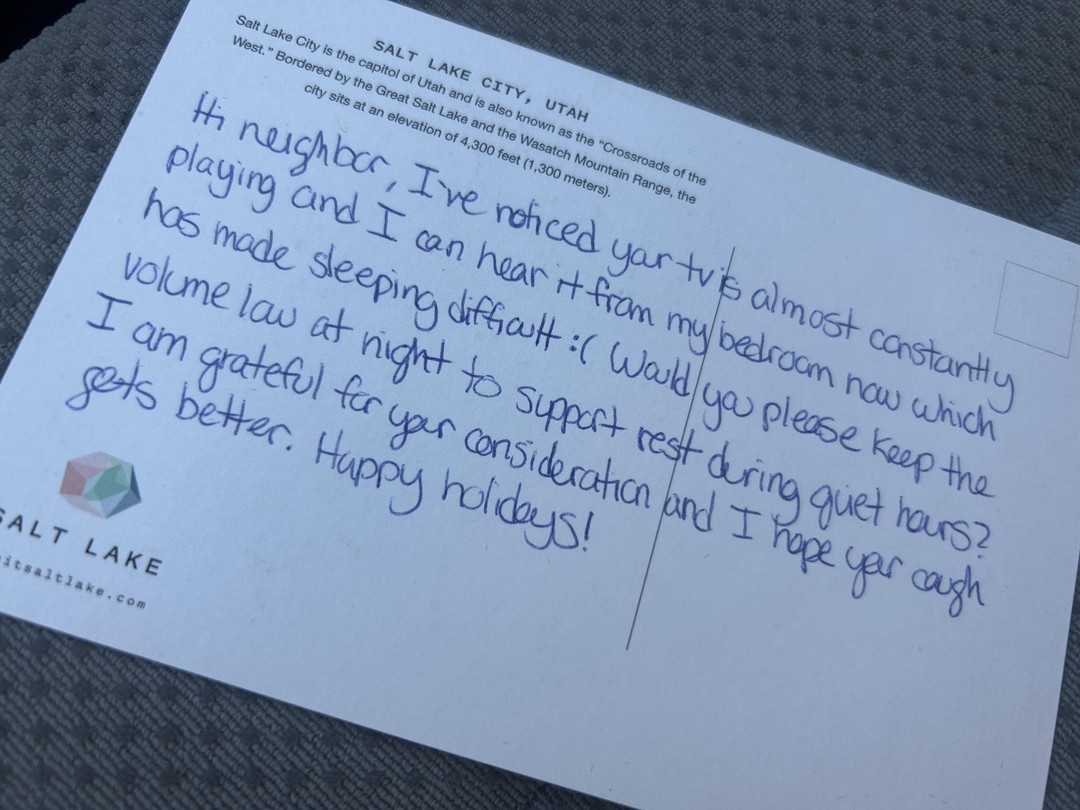 SALT LAKE CITY, UTAH
Salt Lake City is the capitol of Utah and is also known as the "Crossroads of the
West." Bordered by the Great Salt Lake and the Wasatch Mountain Range, the
city sits at an elevation of 4,300 feet (1,300 meters).
Hi neighbor, I've noticed your tv is almost constantly
playing and I can hear it from my bedroom now which
has made sleeping difficult :( Would you please keep the
volume low at night to support rest during quiet hours?
I am grateful for your consideration and I hope your cough
gets better. Happy holidays!
SALT LAKE
itsaltlake.com